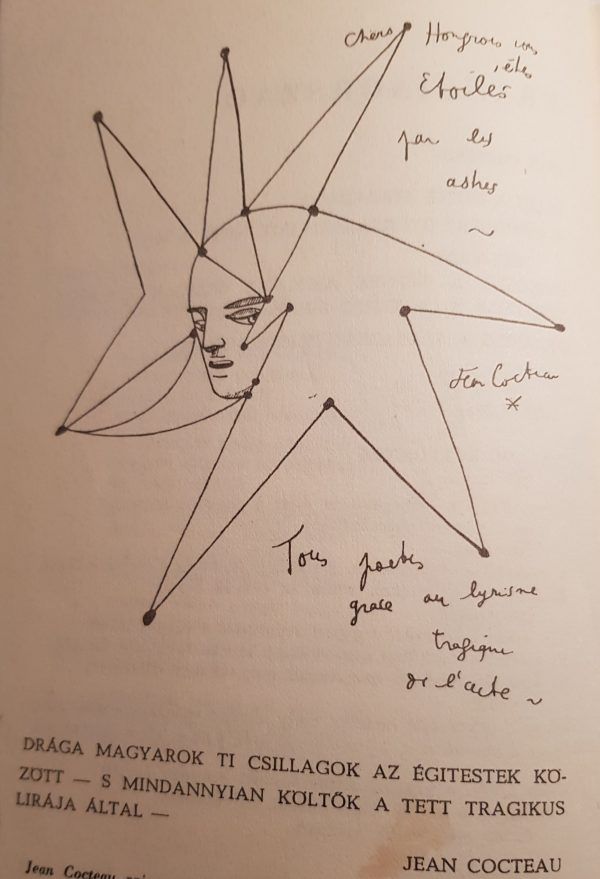 chers Hongrois vous
êtes
Etoiles
par les
astres
~
Jean Cocteau
*
Tous poetes
grace au lyrisme
tragique
de l'acte ~
DRÁGA MAGYAROK TI CSILLAGOK AZ ÉGITESTEK KÖ-
ZÖTT — S MINDANNYIAN KÖLTŐK A TETT TRAGIKUS
LIRÁJA ÁLTAL —
JEAN COCTEAU
Jean Cocteau